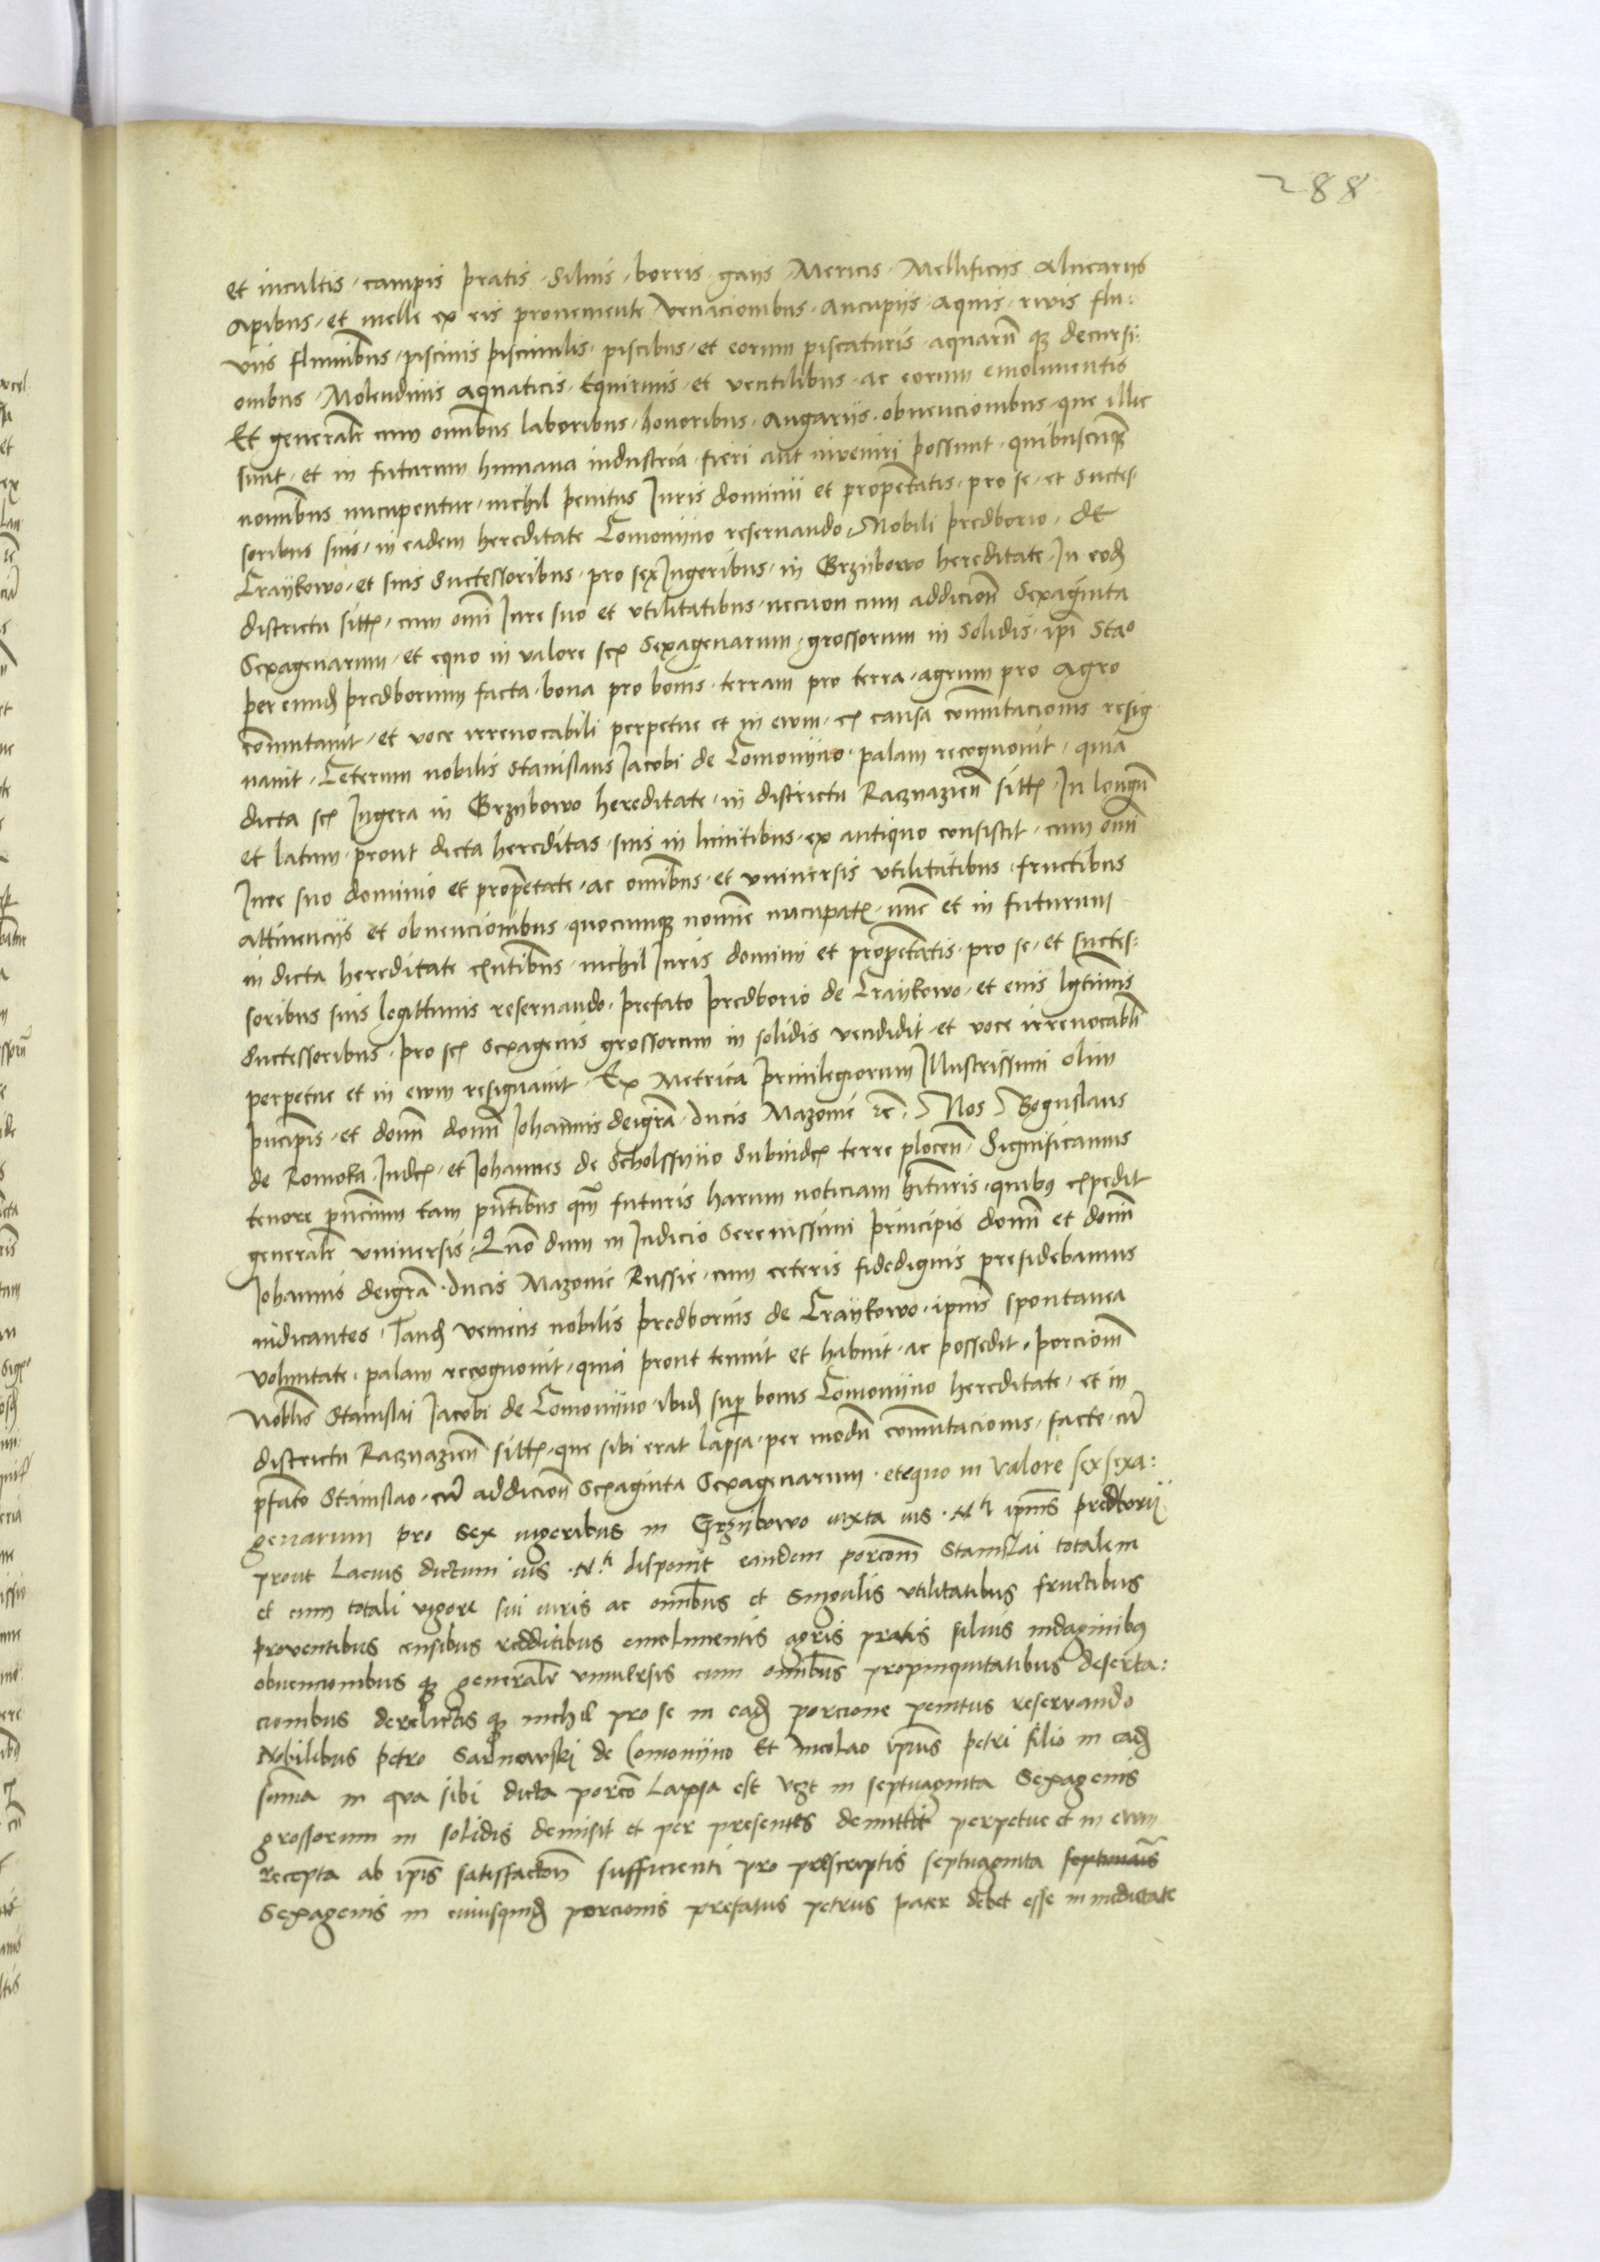 288
et incultis, campis pratis, Silvis, borris gaiis Mericis, Mellificiis Alveariis
Apibus, et melle ex eis proveniente Venacionibus, Aucupiis, Aquis, rivis flu:
viis fluminibus, piscinis pisciculis, piscibus, et eorum piscaturis, aquarũ q3 decursi:
onibus, Molendinis Aquaticis, Equirinis, et ventilibus, ac eorum emolumentis
Et generalr̃ cum omĩbus laboribus, honoribus, Angariis, obvencionibus, que illic
sunt, et in futurum humana industria, fieri aut inveniri possunt, quibuscunq3
nomĩbus nũcupentur, nichil penitus Iuris dominii et proprietatis, pro se, et Succes,
soribus suis, in eadem hereditate Comonyno reservando, Nobili predborio, de
Craykowo, et suis Successoribus, pro sex Iugeribus, in Grzybowo hereditate, In eod̃
districtu sitt̃, cum omĩ Iure suo et utilitatibus, necnon cum addicioñ Sexaginta
Sexagenarum, et equo in valore sex Sexagenarum, grossorum in Solidis, ip̃i Sta°
per eund̃ predborium facta, bona pro bonis, terram pro terra, agrum pro Agro
com̃utavit, et voce irrevocabili perpetue et in evm, ex causa com̃utacionis resig
navit, Ceterum nobilis Stanislaus Iacobi de Comonyno, palam recognovit, quia
dicta sex Iugera in Grzybowo hereditate, in districtu Racznazieñ sitt̃, In longũ
et latum, prout dicta hereditas, suis in limitibus, ex antiquo consistit, cum omĩ
Iure suo dominio et proprietate, ac omĩbus, et universis utilitatibus, fructibus
attinenciis et obvencionibus, quocunq3 nomĩe nũcupat̃, nũc et in futurum
in dicta hereditate exñtibus, nichil Iuris dominii et proprietatis, pro se, et succes:
soribus suis legittimis reservando, prefato predborio de Craykowo, et eius lgtimis
Successoribus, pro sex Sexagenis grossorum in solidis vendidit, et voce irrevocabli
perpetue et in evm resignavit, Ex Metrica privilegiorum Illustrissimi olim
principis, et domĩ domĩ Iohannis deigrã, ducis Mazovie zc̃, Nos Boguslaus
de Romoka, Iudex, et Iohannes de Scholssyno Subiudex terre plocen̄, Significamus
tenore pñcium tam pñtibus q̃m futuris harum noticiam hĩturis, quibus expedit
generalr̃ universis, Quo° dum in Iudicio Serenissimi principis domĩ et domĩ
Iohannis deigrã, ducis Mazovie Russie, cum ceteris fidedignis presidebamus
iudicantes, Tand̃ veniens nobilis predborius de Craykowo, ip̃ius spontanea
voluntate, palam recognovit, quia prout tenuit et habuit, ac possedit, porcioñ
Nob̃lis Stanislai Iacobi de Comonyno, ibid̃ sup̱ bonis Comonyno hereditate, et in
districtu Racznazieñ sitt̃, que sibi erat lapsa, per modũ com̃utacionis, facte, cũ
p̃fato Stanislao, cũ addicioñ Sexaginta Sexagenarum, et equo in valore sex sexa:
genarum pro Sex iugeribus in Grzybowo iuxta ius, N^r̃i ip̃ius predborii
prout lacius dictum ius, N^r̃ disponit eandem porcom̃ Stanislai totalem
et cum totali vigore sui iuris ac omĩbus et Singulis utilitatibus fructibus
proventibus censibus redditibus emolumentis agris pratis silvis indaginibus
obvencionibus q3 generalr̃ universis cum omĩbus propinquitatibus deserta:
cionibus derelictis q3 nichil pro se in ead̃ porcione penitus reservando
Nobilibus petro Sarnowski de Comonyno Et Nicolao ip̃ius petri filio in ead̃
summa in qua sibi dicta porcõ Lapsa est vz̃ in septuaginta Sexagenis
grossorum in solidis demisit et per presentes demittit perpetue et in evm
Recepta ab ip̃is satisfactoñ sufficienti pro prescriptis septuaginta
Sexagenis in cuiusquid̃ porcionis prefatus petrus pater debet esse in medietate